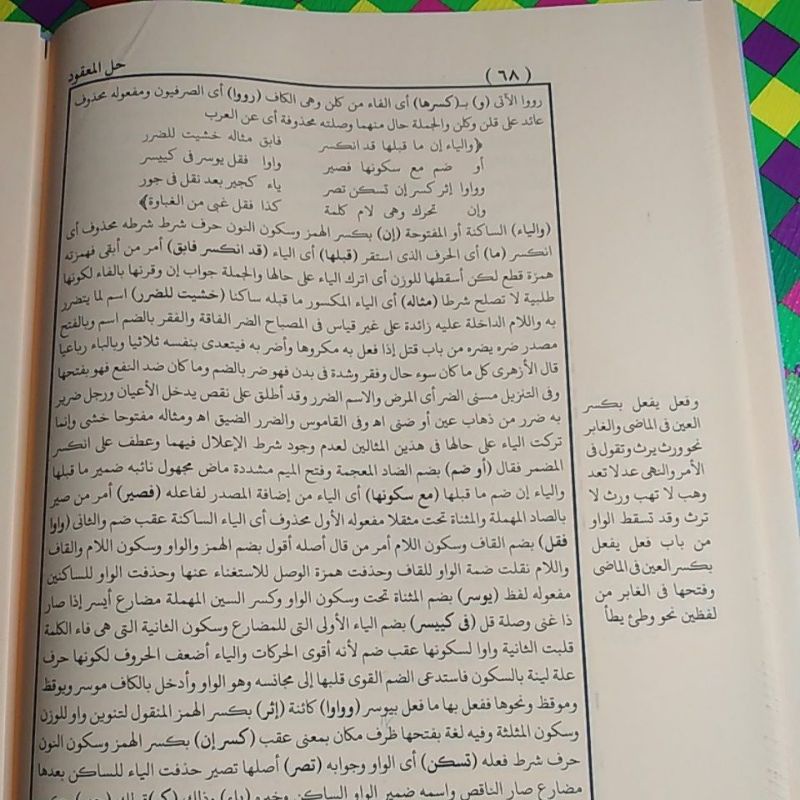 حل المعقود
(٦٨)
رووا الآتى (و) بـ(كسرها) أى الفاء من كلن وهى الكاف (رووا) أى الصرفيون ومفعوله محذوف
عائد على قلن وكلن والجملة حال منهما وصلته محذوفة أى عن العرب
﴿والياء إن ما قبلها قد انكسر فابق مثاله خشيت للضرر
أو ضم مع سكونها فصير واوا فقل يوسر فى كييسر
وواوا إثر كسر إن تسكن تصر ياء كجير بعد نقل فى جور
وإن تحرك وهى لام كلمة كذا فقل غبى من الغباوة﴾
(والياء) الساكنة أو المفتوحة (إن) بكسر الهمز وسكون النون حرف شرط شرطه محذوف أى
انكسر (ما) أى الحرف الذى استقر (قبلها) أى الياء (قد انكسر فابق) أمر من أبقى فهمزته
همزة قطع لكن أسقطها للوزن أى اترك الياء على حالها والجملة جواب إن وقرنها بالفاء لكونها
طلبية لا تصلح شرطا (مثاله) أى الياء المكسور ما قبله ساكنا (خشيت للضرر) اسم لما يتضرر
به واللام الداخلة عليه زائدة على غير قياس فى المصباح الضر الفاقة والفقر بالضم اسم وبالفتح
مصدر ضره يضره من باب قتل إذا فعل به مكروها وأضر به فيتعدى بنفسه ثلاثيا وبالباء رباعيا
قال الأزهرى كل ما كان سوء حال وفقر وشدة فى بدن فهو ضر بالضم وما كان ضد النفع فهو بفتحها
وفى التنزيل مسنى الضر أى المرض والاسم الضرر وقد أطلق على نقص يدخل الأعيان ورجل ضرير
به ضرر من ذهاب عين أو ضنى اه وفى القاموس والضرر الضيق اه ومثاله مفتوحا خشى وإنما
تركت الياء على حالها فى هذين المثالين لعدم وجود شرط الإعلال فيهما وعطف على انكسر
المضمر فقال (أو ضم) بضم الضاد المعجمة وفتح الميم مشددة ماض مجهول نائبه ضمير ما قبلها
والياء إن ضم ما قبلها (مع سكونها) أى الياء من إضافة المصدر لفاعله (فصير) أمر من صير
بالصاد المهملة والمثناة تحت مثقلا مفعوله الأول محذوف أى الياء الساكنة عقب ضم والثانى (واوا
فقل) بضم القاف وسكون اللام أمر من قال أصله أقول بضم الهمز والواو وسكون اللام والقاف
واللام نقلت ضمة الواو للقاف وحذفت همزة الوصل للاستغناء عنها وحذفت الواو للساكنين
مفعوله لفظ (يوسر) بضم المثناة تحت وسكون الواو وكسر السين المهملة مضارع أيسر إذا صار
ذا غنى وصلة قل (فى كييسر) بضم الياء الأولى التى للمضارع وسكون الثانية التى هى فاء الكلمة
قلبت الثانية واوا لسكونها عقب ضم لأنه أقوى الحركات والياء أضعف الحروف لكونها حرف
علة لينة بالسكون فاستدعى الضم القوى قلبها إلى مجانسه وهو الواو وأدخل بالكاف موسر ويوقظ
وموقظ ونحوها ففعل بها ما فعل بيوسر (وواوا) كائنة (إثر) بكسر الهمز المنقول لتنوين واو للوزن
وسكون المثلثة وفيه لغة بفتحها ظرف مكان بمعنى عقب (كسر إن) بكسر الهمز وسكون النون
حرف شرط فعله (تسكن) أى الواو وجوابه (تصر) أصلها تصير حذفت الياء للساكن بعدها
مضارع صار الناقص واسمه ضمير الواو الساكن وخبره (ياء) وذلك
وفعل يفعل بكسر
العين فى الماضى والغابر
نحو ورث يرث وتقول فى
الأمر والنهى عد لا تعد
وهب لا تهب ورث لا
ترث وقد تسقط الواو
من باب فعل يفعل
بكسر العين فى الماضى
وفتحها فى الغابر من
لفظين نحو وطئ يطأ